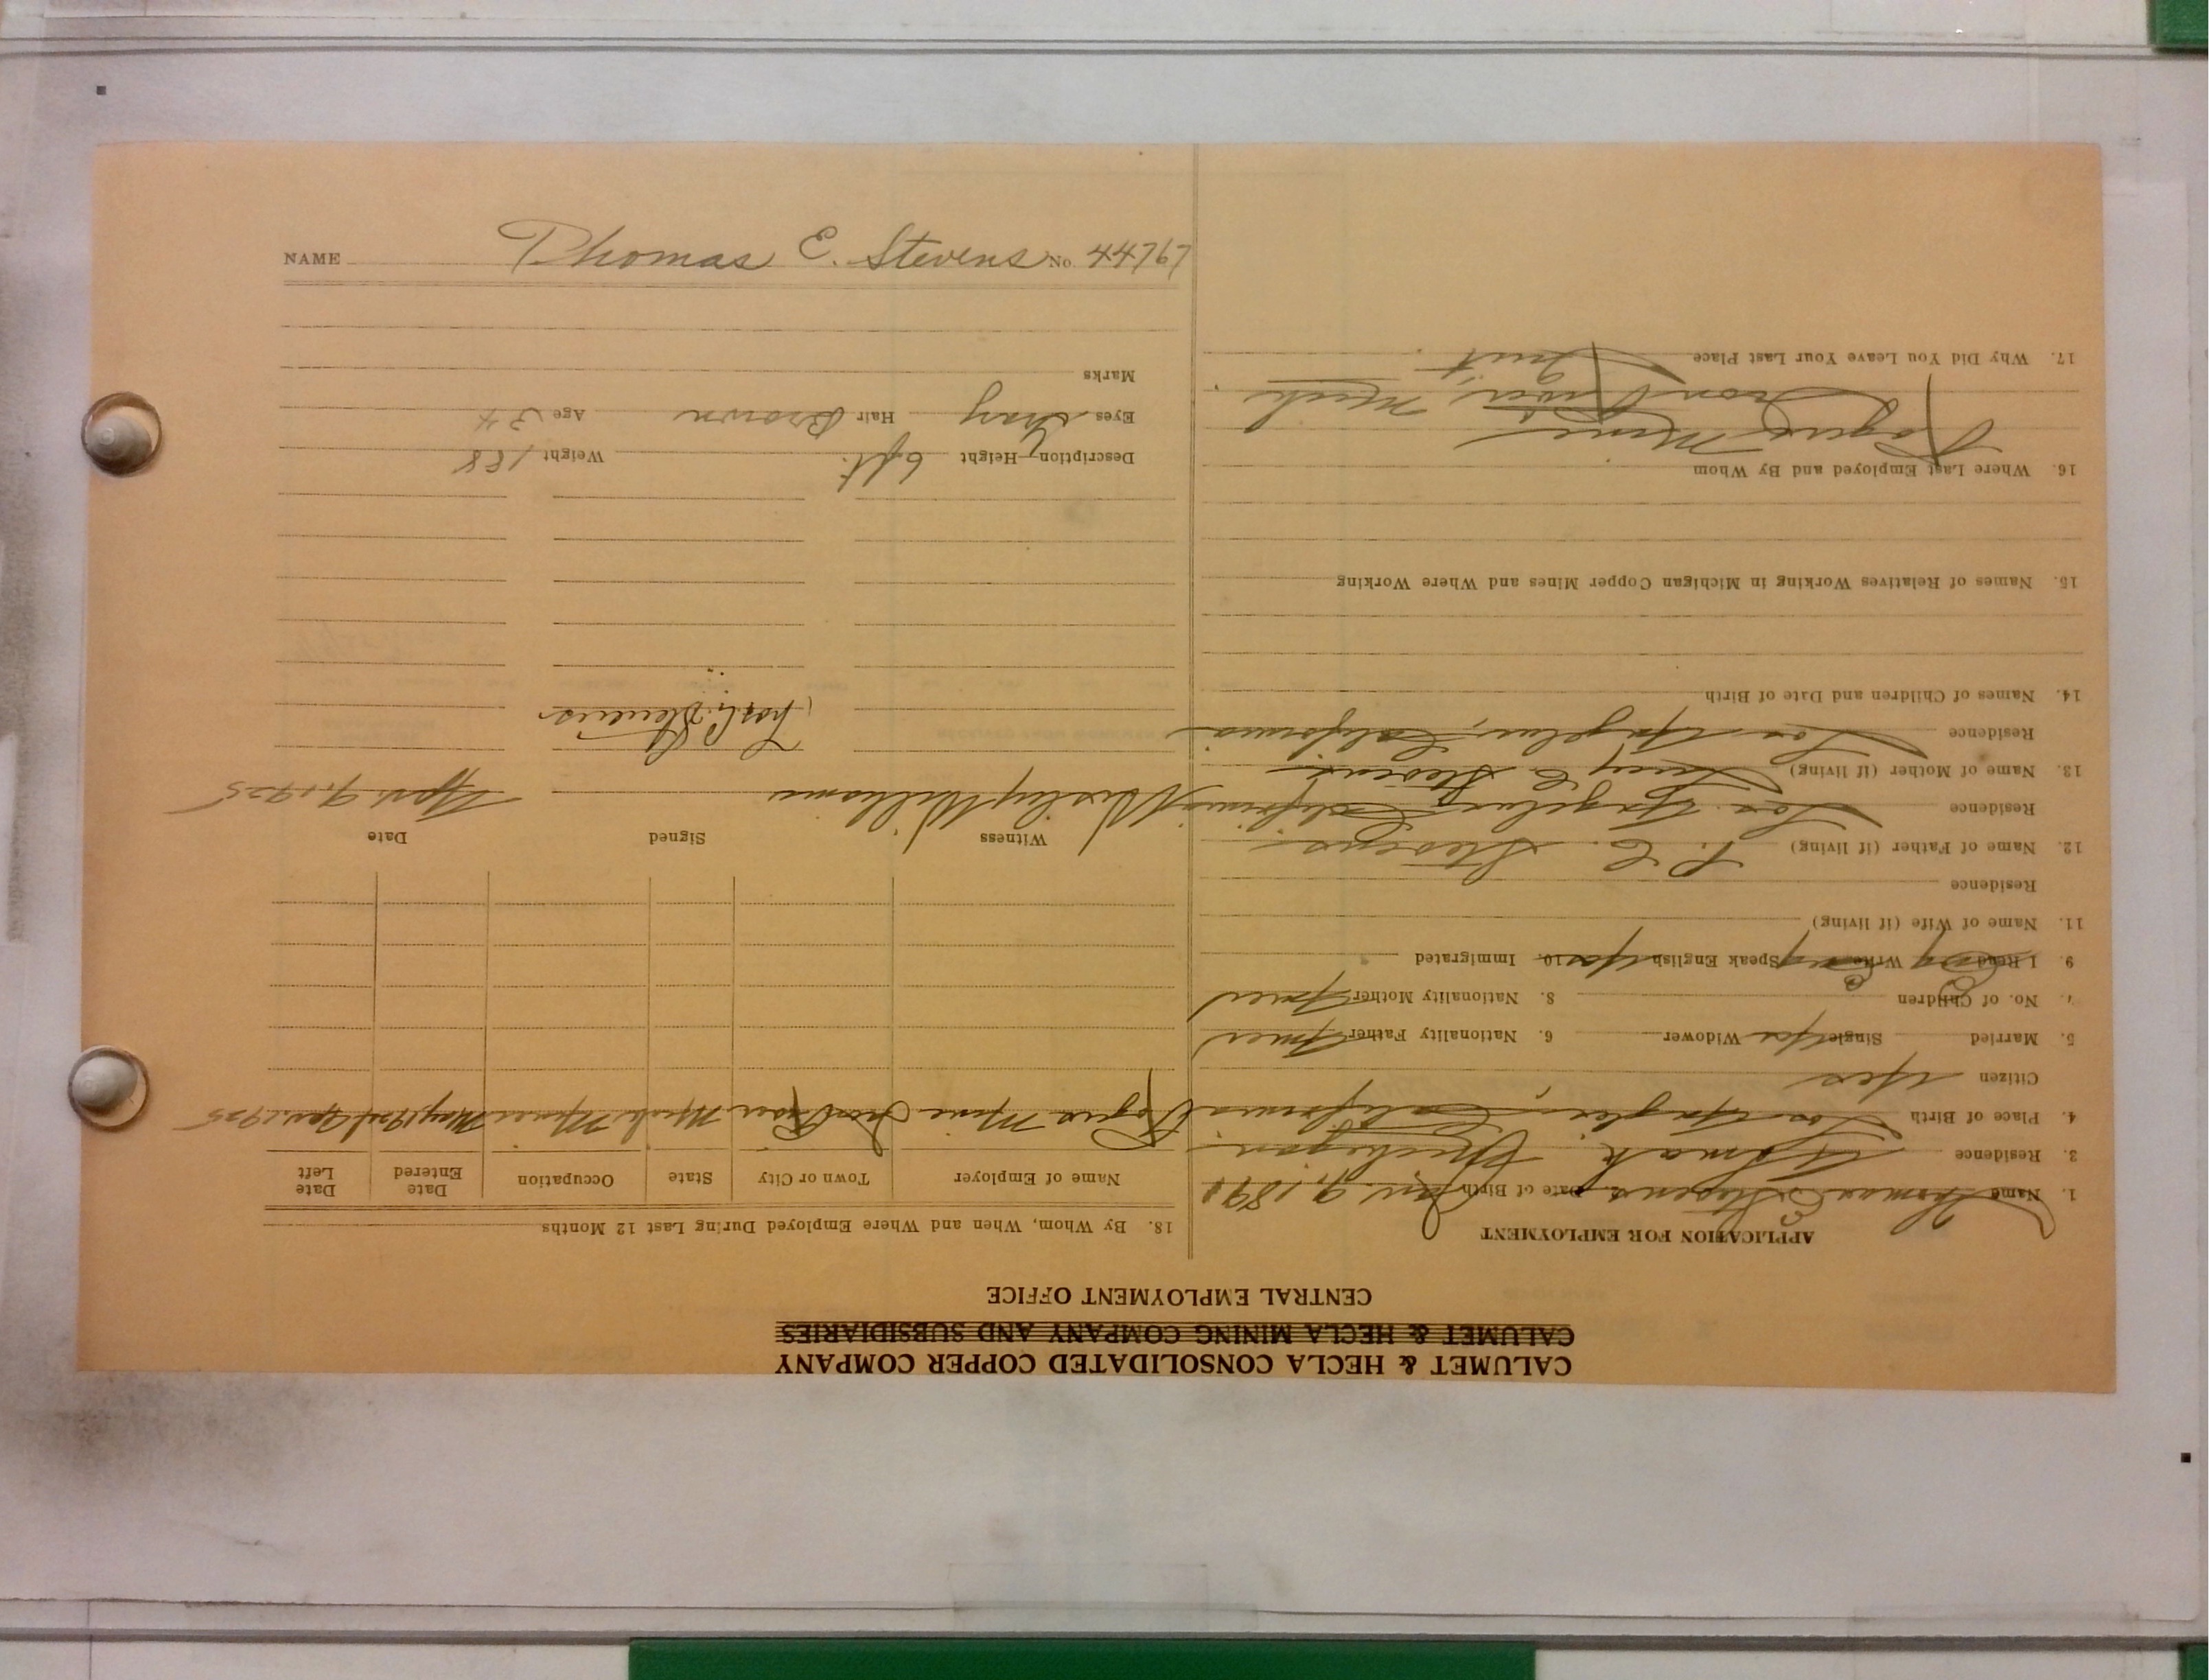 CALUMET & HECLA CONSOLIDATED COPPER COMPANY
CALUMET & HECLA MINING COMPANY AND SUBSIDIARIES
CENTRAL EMPLOYMENT OFFICE
APPLICATION FOR EMPLOYMENT
1. Name Thomas E Stevens Date of Birth Jan. 9, 1891
3. Residence Michigan
4. Place of Birth Los Angeles, California
Citizen Yes
5. Married Single Yes Widower 6. Nationality Father Amer
No. of Children 8. Nationality Mother Amer
9. I Read Eng Write Eng Speak English Yes 10. Immigrated
11. Name of Wife (if living)
Residence
12. Name of Father (if living) E. Stevens
Residence Los Angeles California
13. Name of Mother (if living) Lucy E. Stevens
Residence Los Angeles, California
14. Names of Children and Date of Birth
15. Names of Relatives Working in Michigan Copper Mines and Where Working
16. Where Last Employed and By Whom
Rogers Mine
Iron River, Mich
17. Why Did You Leave Your Last Place Quit
18. By Whom, When and Where Employed During Last 12 Months
Name of Employer Town or City State Occupation Date Entered Date Left
Rogers Mine Iron River Mich Miner May 1924 Jan. 1925
Witness Signed Date
Wesley Williams Apr. 9, 1925
Thos. E. Stevens
Description—Height 6 ft. Weight 188
Eyes Gray Hair Brown Age 34
Marks
NAME Thomas E. Stevens No. 44767